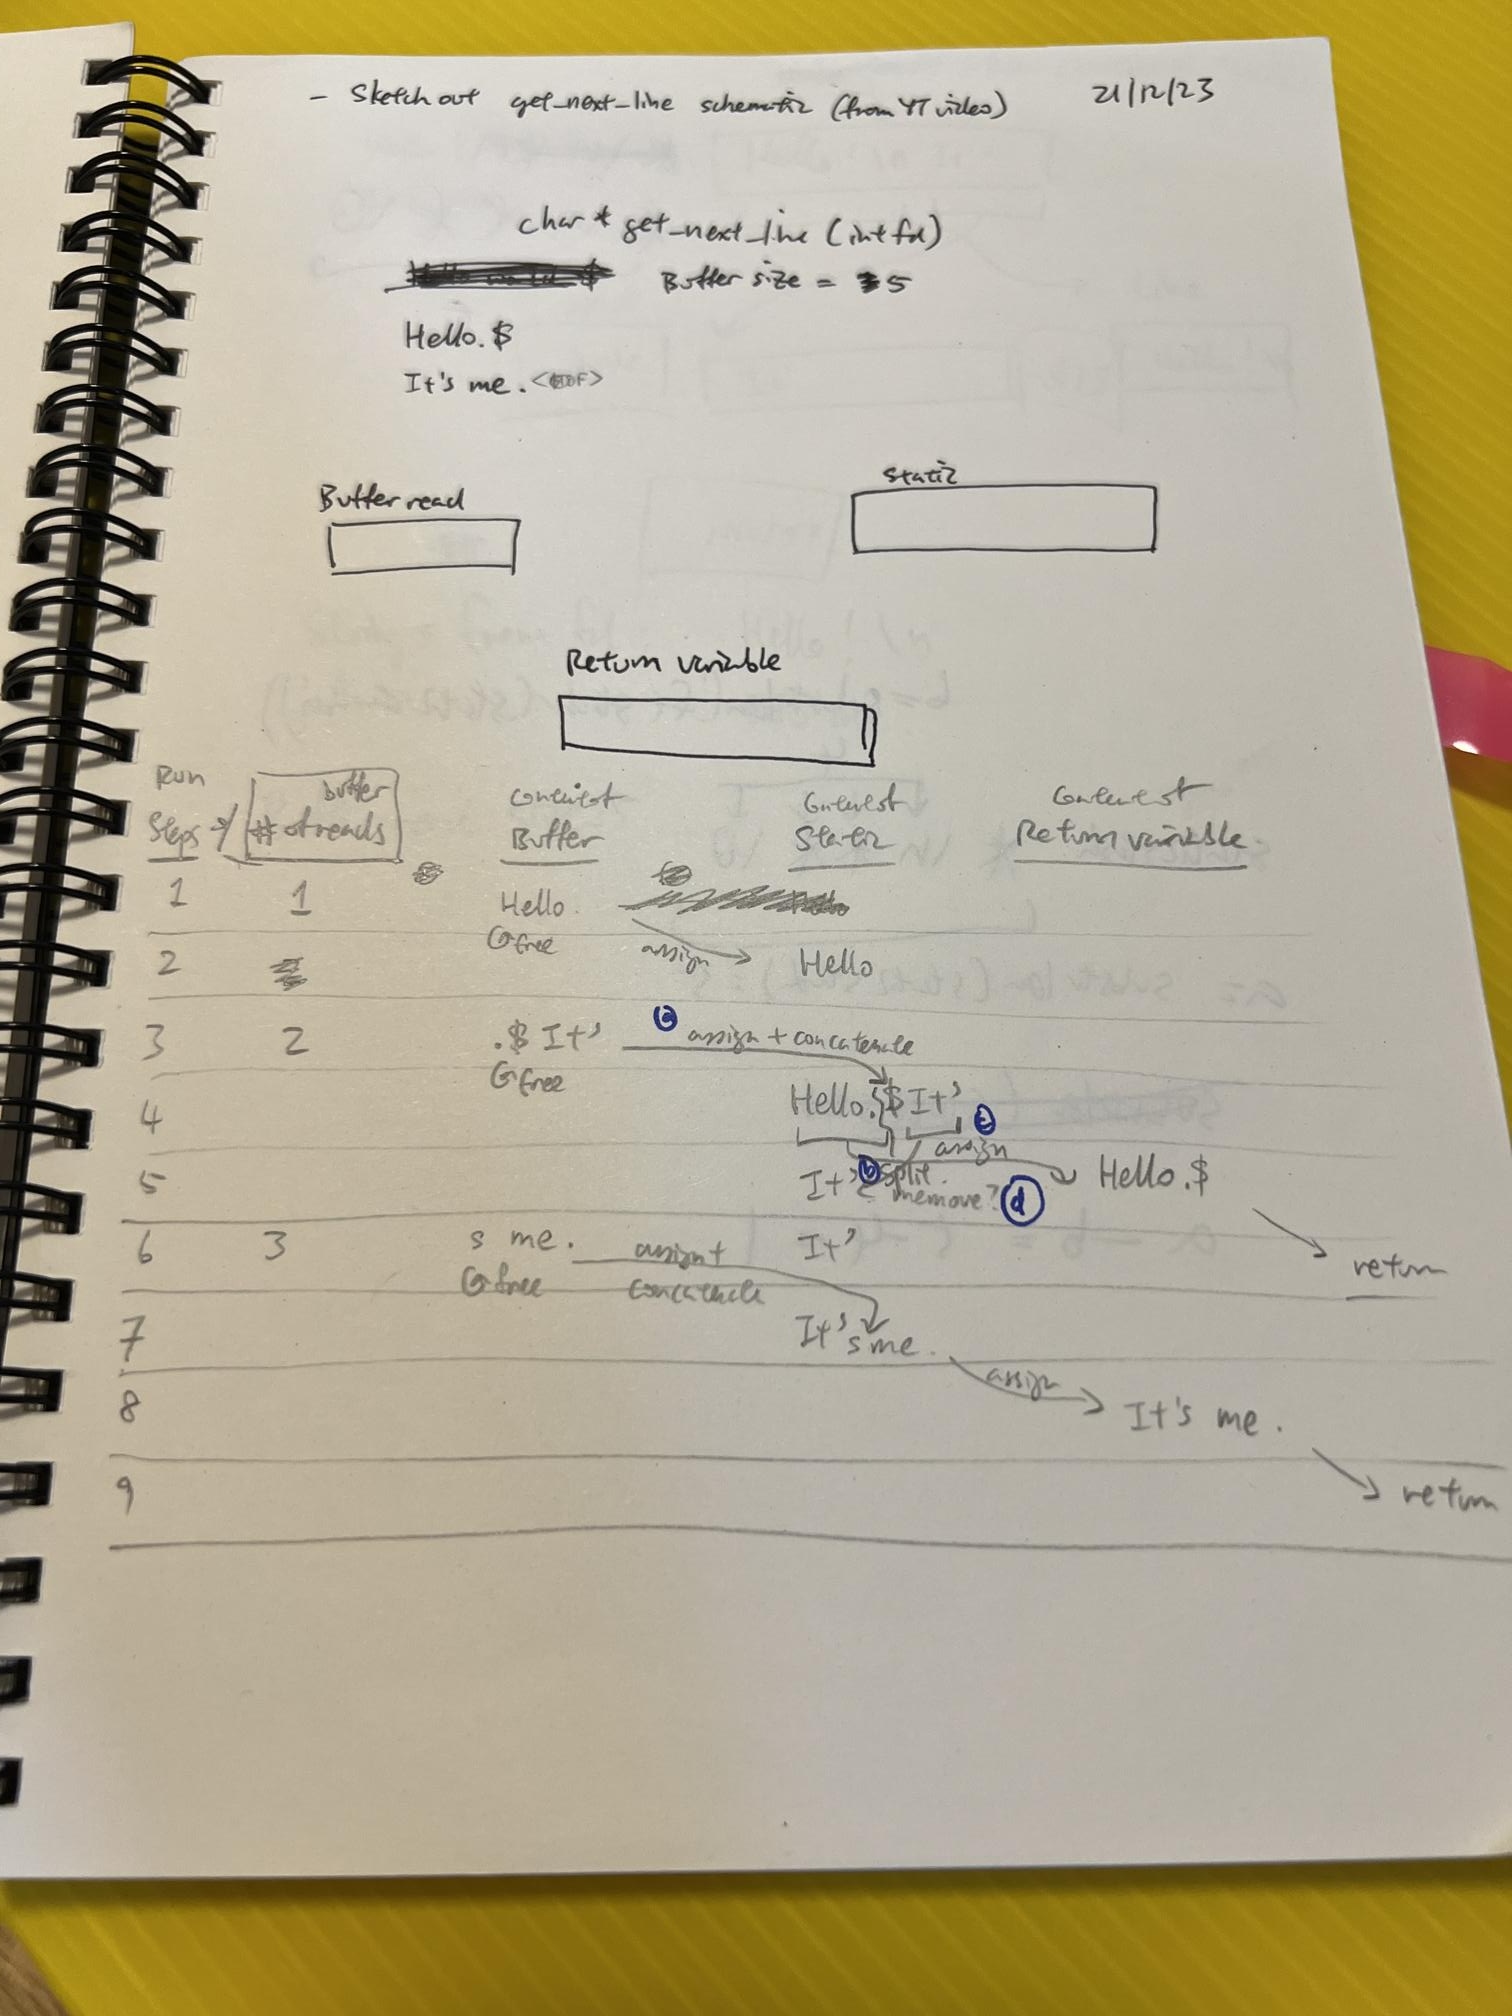 - Sketch out get_next_line schematic (from YT video) 21/12/23
char * get_next_line (int fd)
Buffer size = 5
Hello.$
It's me. <EOF>
Buffer read
Static
Return variable
Run Steps
buffer # of reads
Content Buffer
Content Static
Content Return variable
1 1 Hello.
free assign
2 Hello
3 2 .$ It' a assign + concatenate
free
4 Hello.$It' c
assign
5 It' b split. Hello.$
memove? d
6 3 s me. assign + It' return
free concatenate
7 It's me.
assign
8 It's me.
9 return